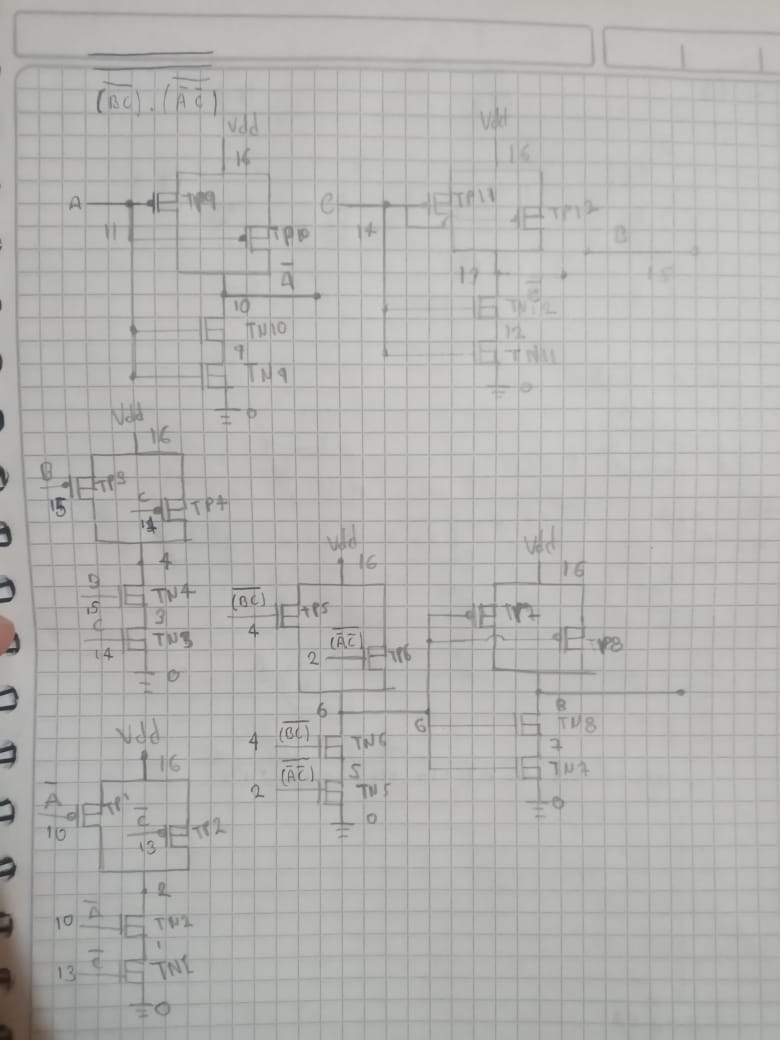 (B̅C̅)‾ . (A̅ C̅)‾
Vdd
16
A
TP9
11
TP10
A̅
10
TN10
9
TN9
0
Vdd
16
C
TP11
14
TP12
B
15
C̅
TN12
12
TN11
0
Vdd
16
B
TP3
15
C
TP4
14
4
B
TN4
15
3
C
TN3
14
0
Vdd
16
(BC)‾
TP5
4
(A̅C̅)‾
2
TP6
6
4
(BC)‾
TN6
5
(A̅C̅)‾
2
TN5
0
Vdd
16
TP7
TP8
6
8
TN8
7
TN7
0
Vdd
16
A̅
TP1
10
C̅
TP2
13
2
10
A̅
TN2
1
13
C̅
TN1
0